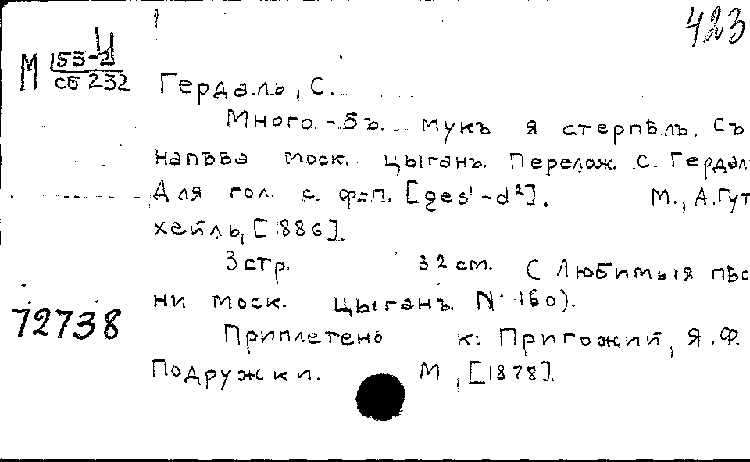 423
М 53-2
сб 232
Гердаль, С.
Много-бъ мукъ я стерпѣлъ. Съ
напѣва моск. цыганъ. Перелож. С. Гердал
Для гол. с. ф-п. [ges¹-d²]. М., А. Гут
хейль, [1886].
3 стр. 32 см. (Любимыя пѣс
ни моск. цыганъ. № 160).
72738
Приплетено к: Пригожий, Я. Ф.
Подружки. М, [1878].